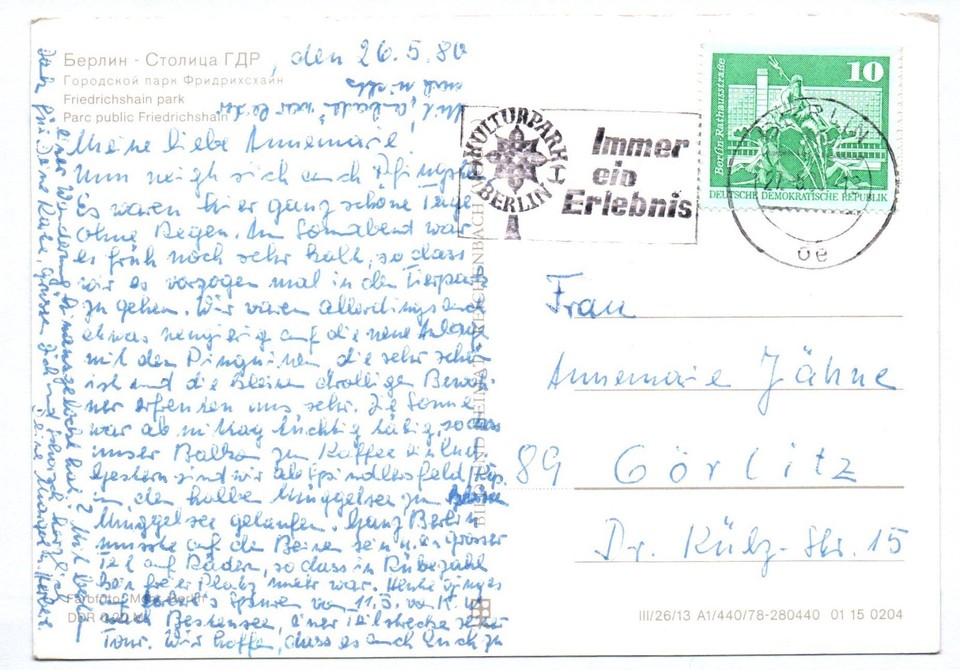 Берлин - Столица ГДР
Городской парк Фридрихсхайн
Friedrichshain park
Parc public Friedrichshain
, den 26.5.80
Meine liebe Annemarie!
Nun neigt sich auch Pfingsten
Es waren hier ganz schöne Tage
ohne Regen. Am Sonnabend war
es früh noch sehr kalt, so dass
wir es vorzogen mal in den Tierpark
zu gehen. Wir waren allerdings auch
etwas neugierig auf die neue Anlage
mit den Pinguinen die sehr schön
ist und die kleinen drolligen Bewoh-
ner erfreuten uns sehr. Die Sonne
war ab Mittag tüchtig tätig, so dass
unser Balkon zum Kaffee
Gestern sind wir ab Spindlersfeld/Köp.
in den halbe Müggelsee zu
Müggelsee gelaufen. Ganz Berlin
musste auf den Beinen sein u. ein grosser
Teil auf Rädern, so dass in Rübezahl
kein freier Platz mehr war. Heute ging es
auf Spuren vom 11.5. von
nach Bestensee, einer Teilstrecke
Tour. Wir hoffen, dass es auch Euch zu
einer Wanderung hinausgelockt hat? Mit
für Deine Karte, grüssen Dich und
Deine
Farbfoto:
DDR
BILD UND HEIMAT REICHENBACH
KULTURPARK
BERLIN
Immer
ein
Erlebnis
10
Berlin-Rathausstraße
DEUTSCHE DEMOKRATISCHE REPUBLIK
BERLIN
Frau
Annemarie Jähne
89 Görlitz
Dr. Külz-Str. 15
III/26/13 A1/440/78-280440 01 15 0204